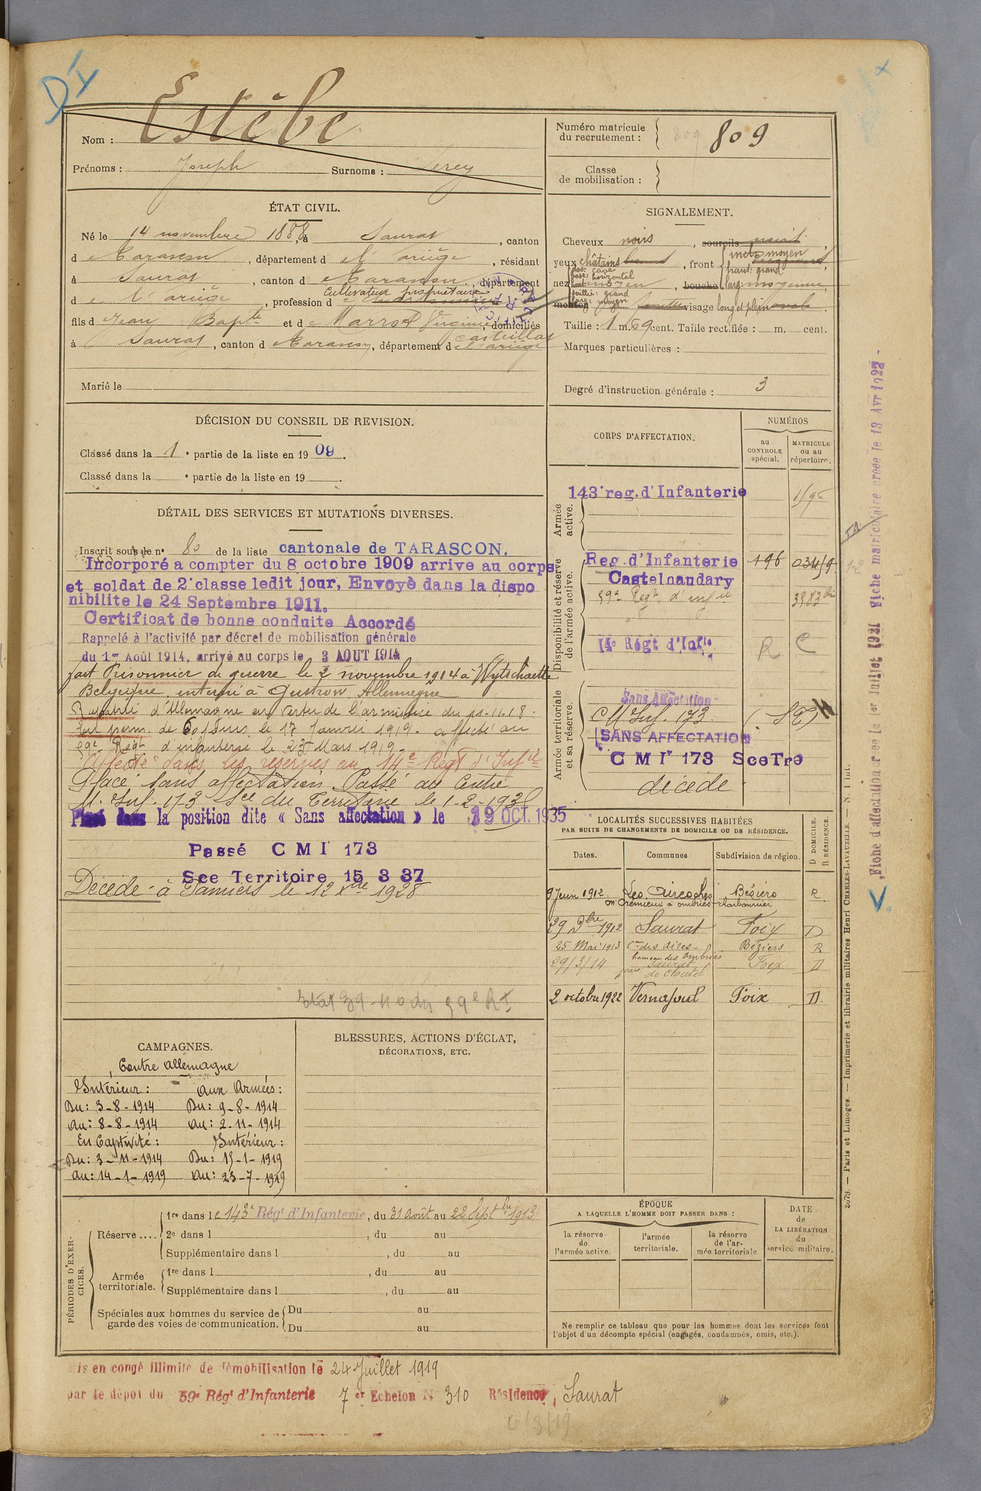 D I
Nom : Estèbe
Prénoms : Joseph Surnoms : Verey
Numéro matricule du recrutement : 809
Classe de mobilisation :
ÉTAT CIVIL.
Né le 14 novembre 1888, à Saurat, canton
d e Tarascon, département d e l'Ariège, résidant
à Saurat, canton d e Tarascon, département
d e l'Ariège, profession d Cultivateur propriétaire
fils d e Jean Bapte et d e Marrot Virginie domiciliés
à Saurat, canton d e Tarascon, département d e l'Ariège
Marié le
SIGNALEMENT.
Cheveux noirs, sourcils
yeux châtains, front moyen
nez moyen, bouche moyenne
menton visage long et plein
Taille : 1 m. 69 cent. Taille rectifiée : m. cent.
Marques particulières :
Degré d'instruction générale : 3
DÉCISION DU CONSEIL DE REVISION.
Classé dans la 1 e partie de la liste en 1909.
Classé dans la e partie de la liste en 19 .
DÉTAIL DES SERVICES ET MUTATIONS DIVERSES.
Inscrit sous le n° 80 de la liste cantonale de TARASCON.
Incorporé a compter du 8 octobre 1909 arrive au corps
et soldat de 2e classe ledit jour, Envoyé dans la dispo
nibilite le 24 Septembre 1911.
Certificat de bonne conduite Accordé
Rappelé à l'activité par décret de mobilisation générale
du 1er Août 1914, arrivé au corps le 3 AOUT 1914
fait Prisonnier de guerre le 2 novembre 1914 à Wytschaete
Belgique, interné à Gustrow Allemagne
Rapatrié d'Allemagne en vertu de l'armistice du 11.11.18.
en perm. de 60 jours le 17 Janvier 1919. affecté au
59e Regt d'infanterie le 23 Mars 1919.
Affecté dans les réserves au 14e Regt d'Infie
Placé Sans affectation Passé au Centre
M. Inf. 173 Sce du Territoire le 1-2-1928
Placé dans la position dite « Sans affectation » le 19 OCT. 1935
Passé C M I 173
Sce Territoire 15 3 37
Décédé à Pamiers le 12 Xbre 1928
Etat 39-110 du 59e R I
CORPS D'AFFECTATION.
NUMÉROS
au CONTROLE spécial.
MATRICULE ou au répertoire.
Armée active.
143e reg. d'Infanterie
Disponibilité et réserve de l'armée active.
Reg. d'Infanterie 196 034/9
Castelnaudary
59e Regt d'infie
14e Régt d'Infie R C
Armée territoriale et sa réserve.
Sans Affectation
C M Inf. 173 (ST)
SANS AFFECTATION
C M Ir 173 SceTre
décédé
LOCALITÉS SUCCESSIVES HABITÉES
PAR SUITE DE CHANGEMENTS DE DOMICILE OU DE RÉSIDENCE.
Dates. Communes Subdivision de région. D. DOMICILE. R. RÉSIDENCE.
9 Juin 1912 Les Aires Béziers R
29 Xbre 1912 Saurat Foix D
25 Mai 1913 Béziers R
29/3/14 Saurat Foix D
2 octobre 1922 Vernajoul Foix D
CAMPAGNES.
Contre Allemagne
Intérieur : Aux Armées :
Du : 3-8-1914 Du : 9-8-1914
au : 8-8-1914 au : 2-11-1914
En Captivité : Intérieur :
Du : 3-11-1914 Du : 15-1-1919
au : 14-1-1919 au : 23-7-1919
BLESSURES, ACTIONS D'ÉCLAT,
DÉCORATIONS, ETC.
PÉRIODES D'EXERCICES.
Réserve .... 1re dans le 143e Régt d'Infanterie, du 31 août au 22 Septbre 1913
2e dans l , du au
Supplémentaire dans l , du au
Armée territoriale. 1re dans l , du au
Supplémentaire dans l , du au
Spéciales aux hommes du service de garde des voies de communication. Du au
Du au
ÉPOQUE
A LAQUELLE L'HOMME DOIT PASSER DANS :
la réserve de l'armée active. l'armée territoriale. la réserve de l'armée territoriale
DATE de LA LIBÉRATION du service militaire.
Ne remplir ce tableau que pour les hommes dont les services font
l'objet d'un décompte spécial (engagés, condamnés, omis, etc.).
Mis en congé illimité de démobilisation le 24 Juillet 1919
par le dépôt du 59e Régt d'Infanterie 7 er Echelon N° 310 Résidence, Saurat
6/8/19
Fiche d'affectation créée le 1er Juillet 1921 Fiche matriculaire créée le 13 Avr 1922
2079. — Paris et Limoges. — Imprimerie et librairie militaires Henri CHARLES-LAVAUZELLE.